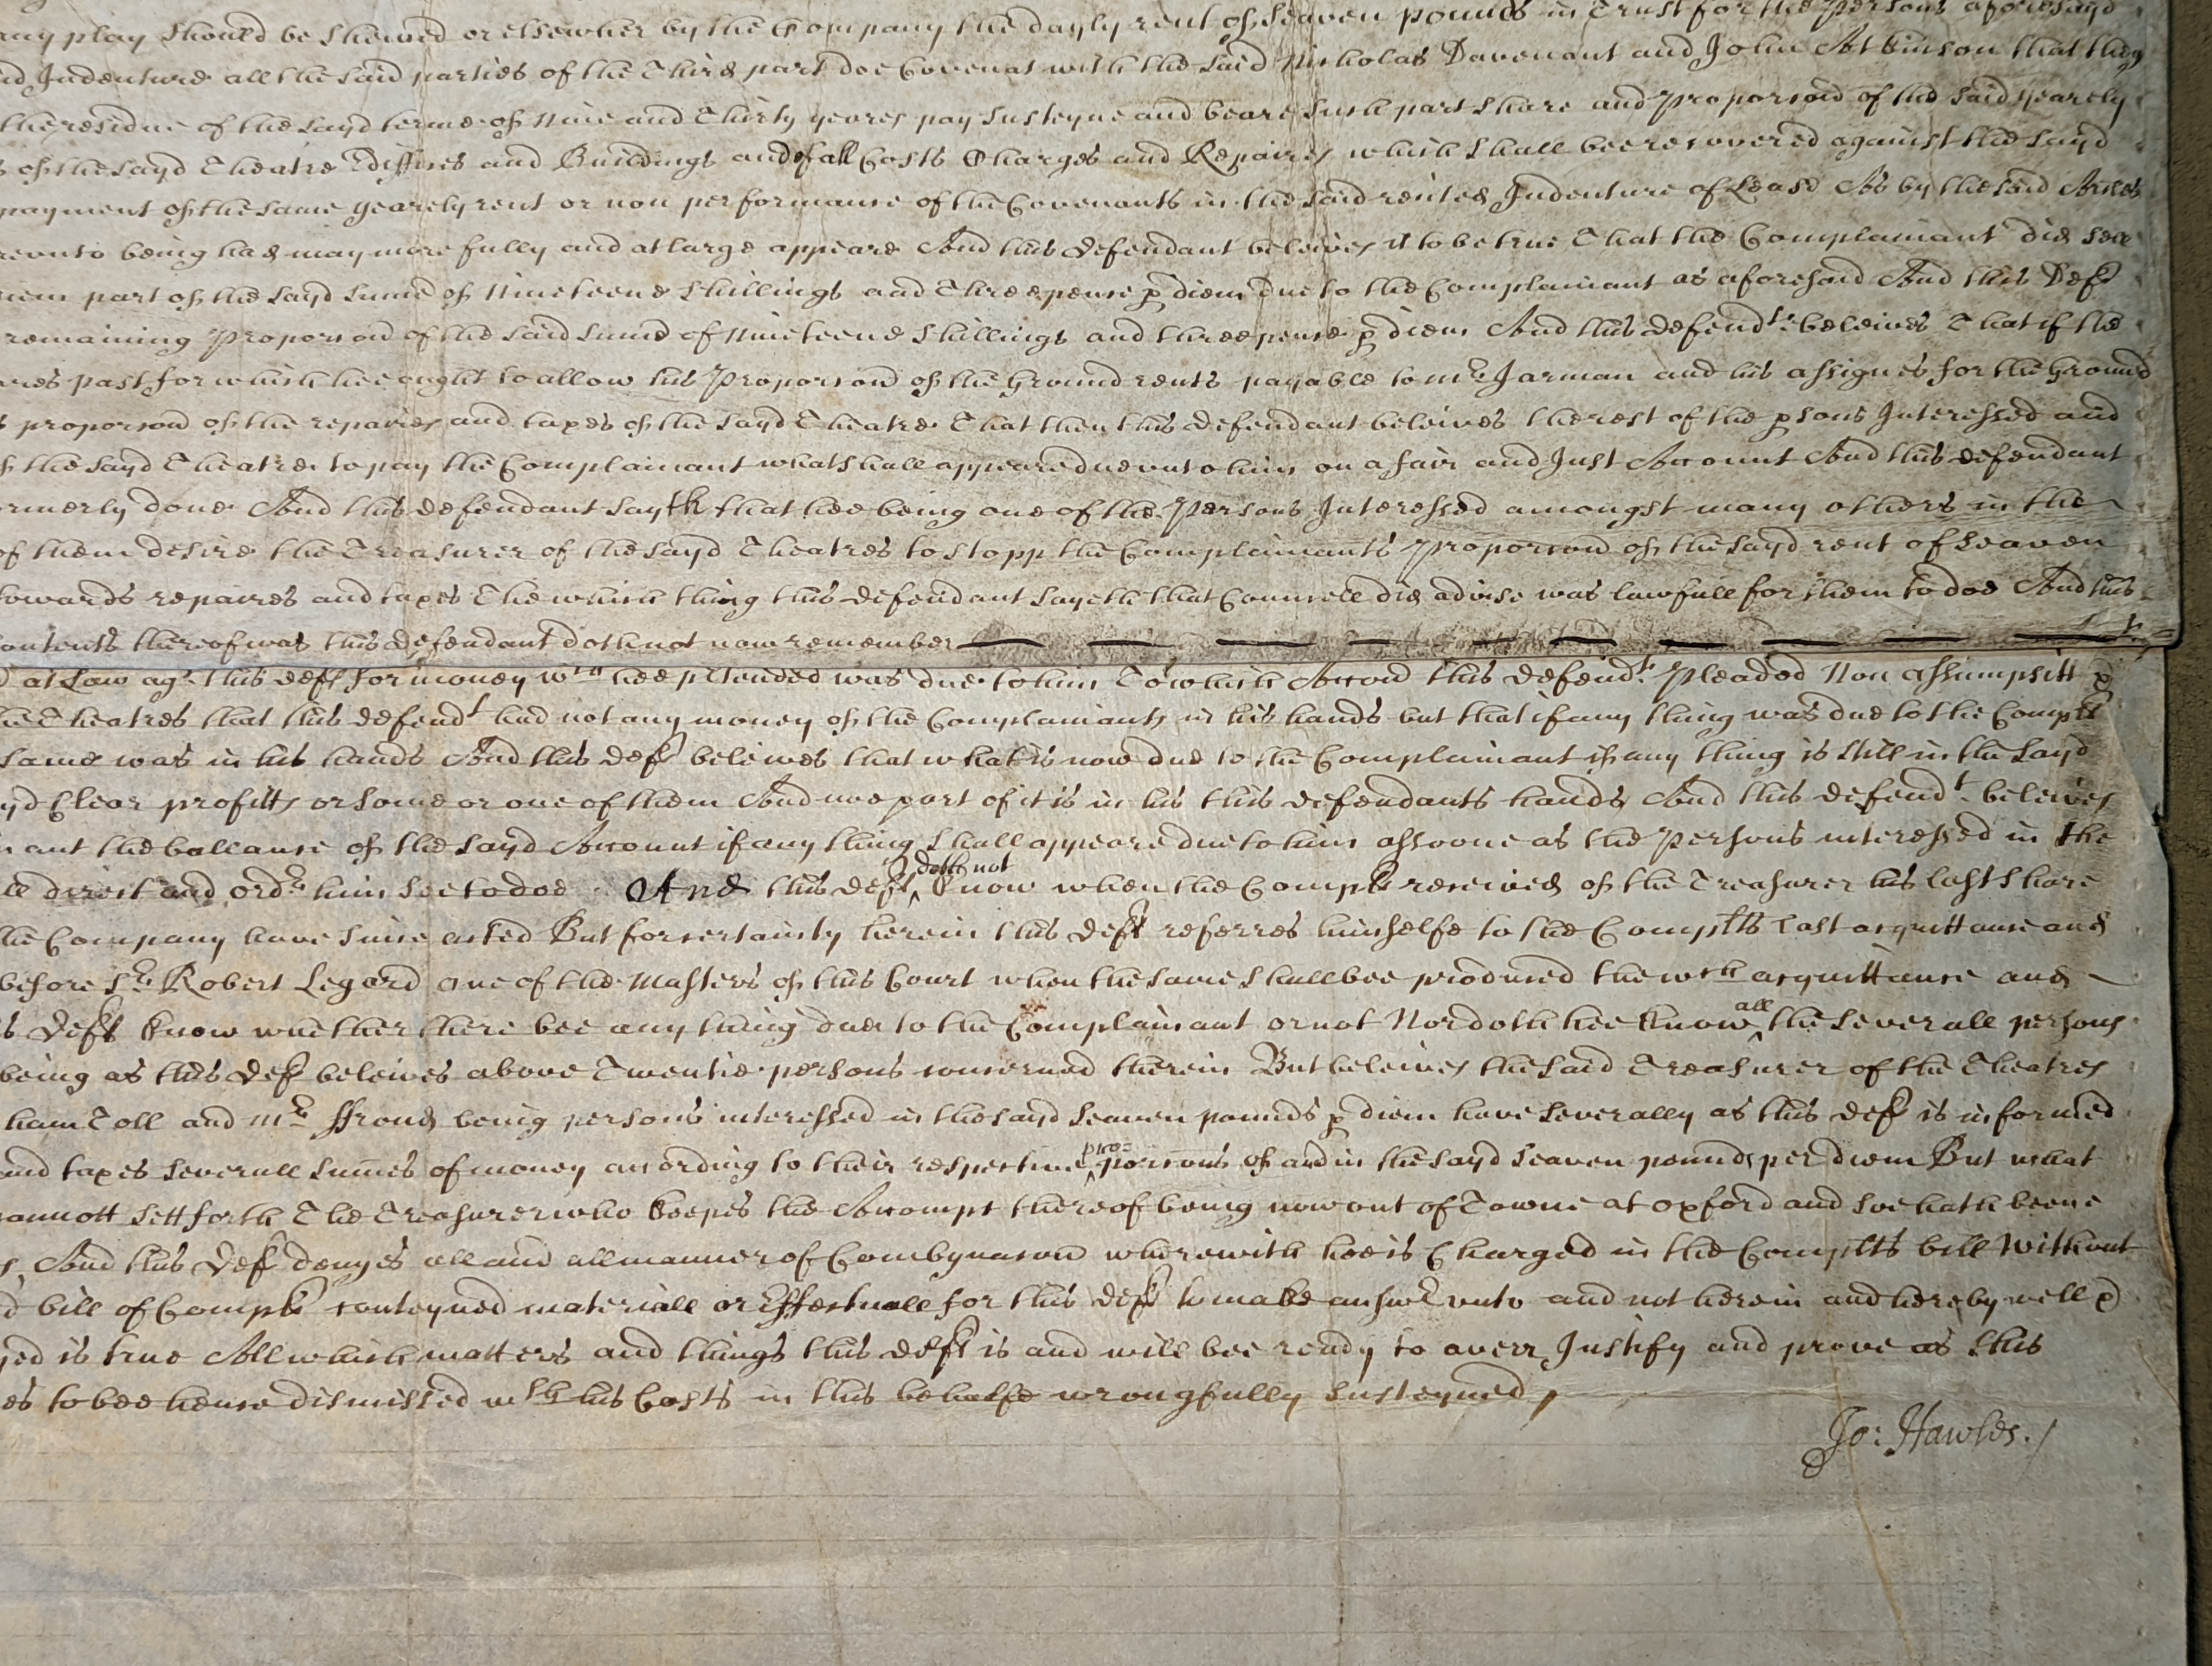 any play should be shewed or elsewher by the Company the dayly rent of Seaven pounds in Trust for the Persons aforesayd
Indenture all the said parties of the Third part doe Covenat with the said Nicholas Davenant and John Atkinson that they
the residue of the sayd terme of Nine and Thirty yeares pay susteyne and beare such part share and proporcion of the said yearely
of the sayd Theatre Ediffices and Buildings and of all Costs Charges and Repaires which shall bee recovered against the sayd
payment of the same yearely rent or non performance of the Covenants in the said recited Indenture of Lease As by the said
being had may more fully and at large appeare And this defendant beleives it to be true That the Complainant did
part of the sayd sume of Nineteene shillings and Threepence p diem due to the Complainant as aforesaid And this Deft
remaining Proporcion of the said sume of Nineteene shillings and threepence p diem And this defendt beleives That if the
past for which hee ought to allow his Proporcion of the Ground rents payable to mr Jarman and his assignes for the Ground
proporcion of the repaires and taxes of the sayd Theatre That then this defendant beleives the rest of the psons Interessed and
the sayd Theatre to pay the Complainant what shall appeare due unto him on a fair and Just Account And this defendant
done And this defendant sayth that hee being one of the Persons Interessed amongst many others in the
of them desire the Treasurer of the sayd Theatres to stopp the Complainants Proporcion of the sayd rent of Seaven
towards repaires and taxes The which thing this defendant sayeth that Councell did advise was lawfull for them to doe And this
thereof was this defendant doth not now remember
at Law agt this deft for money wch hee ptended was due to him To which Accon this defendt Pleaded Non assumpsitt p
Theatres that this defendt had not any money of the Complainants in his hands but that if any thing was due to the Complt
same was in his hands And this deft beleives that what is now due to the Complainant if any thing is still in the sayd
Clear profitts or some or one of them And noe part of it is in his this defendants hands And this defendt beleives
the ballance of the sayd Account if any thing shall appeare due to him assoone as the Persons interessed in the
direct and ordr him soe to doe And this deft doth not know when the Complt received of the Treasurer his last share
the Company have since acted But for certainty herein this deft referres himselfe to the Complts last acquittance and
before Sr Robert Legard one of the Masters of this Court when the same shall bee produced the wch acquittance and
Deft know whether there bee any thing due to the Complainant or not Nor doth hee know all the severall persons
being as this Deft beleives above Twentie persons concerned therein But beleives the said Treasurer of the Theatres
Toll and mr ffroud being persons interessed in the sayd Seaven pounds p diem have severally as this deft is informed
and taxes severall sumes of money according to their respective proporcions of and in the sayd Seaven pounds per diem But what
cannott sett forth The Treasurer who keepes the Accompt thereof being now out of Towne at Oxford and soe hath beene
And this Deft denyes all and all manner of Combynacion wherewith hee is Charged in the Complts bill Without
bill of Complt conteyned materiall or Effectuall for this deft to make answr unto and not herein and hereby well
is true All which matters and things this deft is and will bee ready to averr Justify and prove as this
to bee hence dismissed wth his Costs in this behalfe wrongfully susteyned
Jo: Hawles